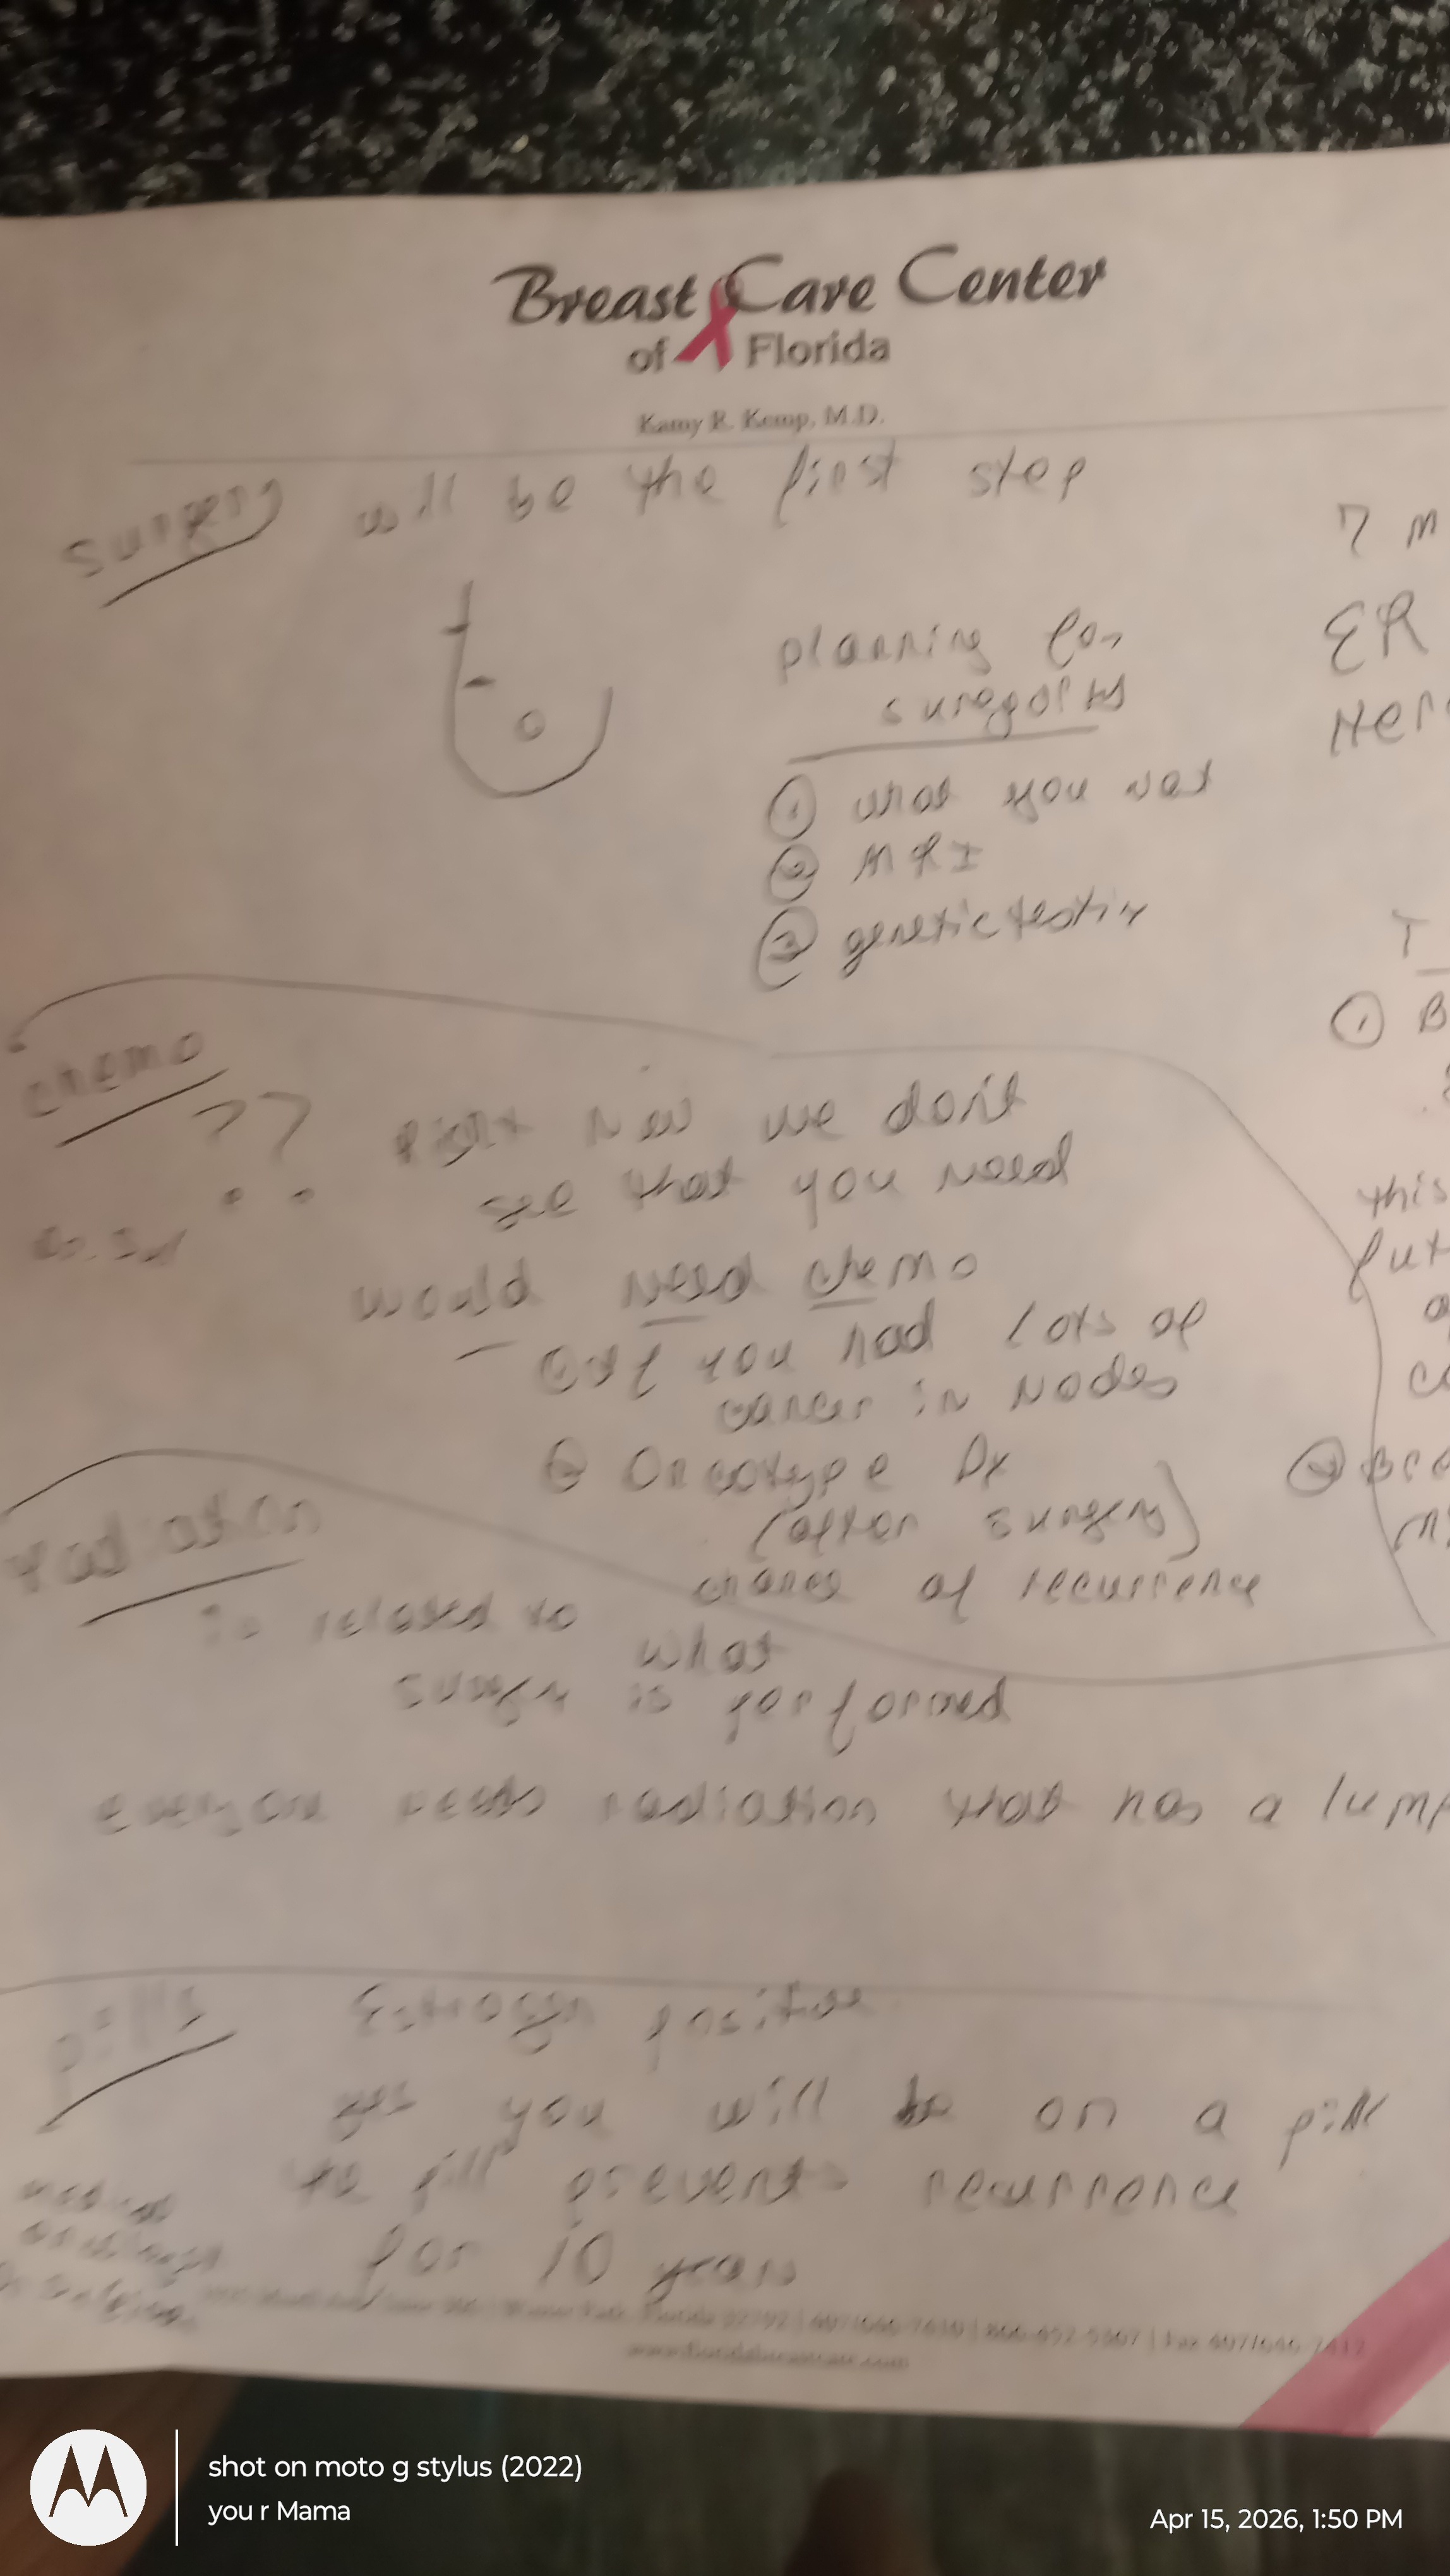 Breast Care Center
of Florida
Kamy R. Kemp, M.D.
surgery will be the first step
7 m
ER
Her
planning for
① what you want
② MRI
③ genetic testing
T
① B
chemo
?? Right now we don't
see that you need
would need chemo
① if you had lots of
cancer in nodes
② Oncotype Dx
(after surgery)
chance of recurrence
this
fut
② Bre
radiation
is related to
what
surgery is performed
everyone needs radiation that has a lump
pills Estrogen positive
yes you will be on a pill
the pill prevents recurrence
for 10 years
medical
shot on moto g stylus (2022)
you r Mama
Apr 15, 2026, 1:50 PM